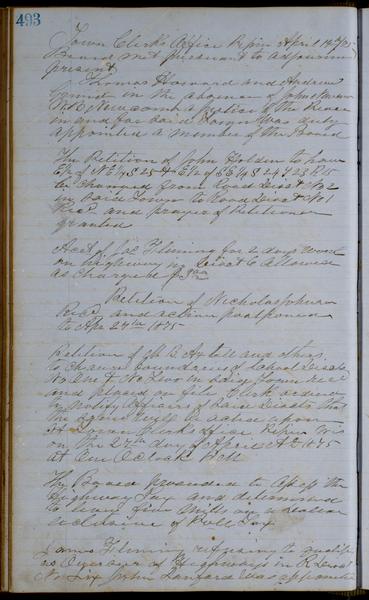 493
Town Clerk's Office Pepin April 14th/75
Board met pursuant to adjournment
present
Thomas Howard and Andrew
in the absence of John
Newcomb a Justice of the Peace
in and for said Town was duly
appointed a member of the Board
The Petition of John Holden to have
E½ of N E ¼ S 25 & E½ of S E ¼ S 24 T 23 R 15
be changed from Road Dist No 2
in said Town to Road Dist No 1
Recd and prayer of Petitioner
granted
Acct of Jas Fleming for 2 days work
on highway in Dist 6 allowed
as charged $3.00
Petition of Nicholas
Recd and action postponed
to Apr 27th 1875
Petition of and others
to change boundaries of School Dists
No One & No Two in said Town recd
and placed on file Clerk ordered
to notify Clerks of said Dists that
the same will be acted upon
at Town Clerk's Office Pepin Wis
on the 27th day of April AD 1875
at One O Clock P.M
The Board proceeded to assess the
Highway Tax and determined
to levy five mills on a dollar
exclusive of Poll Tax
James Fleming refusing to qualify
as Overseer of Highways in R Dist
No Six John Lanford was appointed